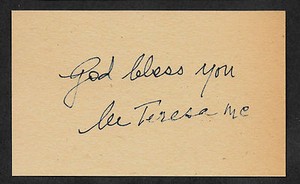 God bless you
lee Teresa mc